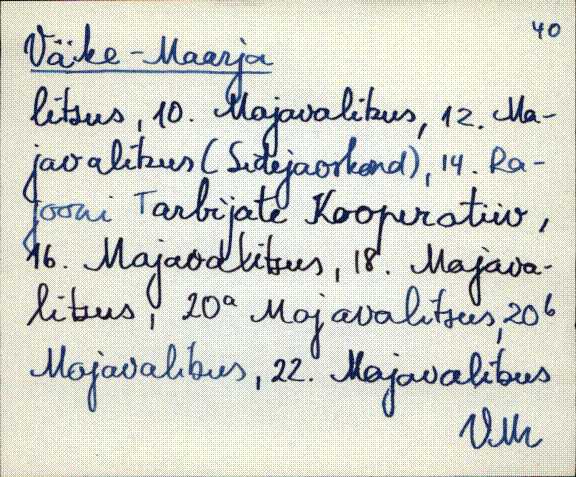 40
Väke-Maarja
litsus, 10. Majavalitsus, 12. Ma-
javalitsus (Sidejaoskond), 14. Ra-
jooni Tarbijate Kooperatiiv,
16. Majavalitsus, 18. Majava-
litsus, 20a Majavalitsus, 20b
Majavalitsus, 22. Majavalitsus
V.M